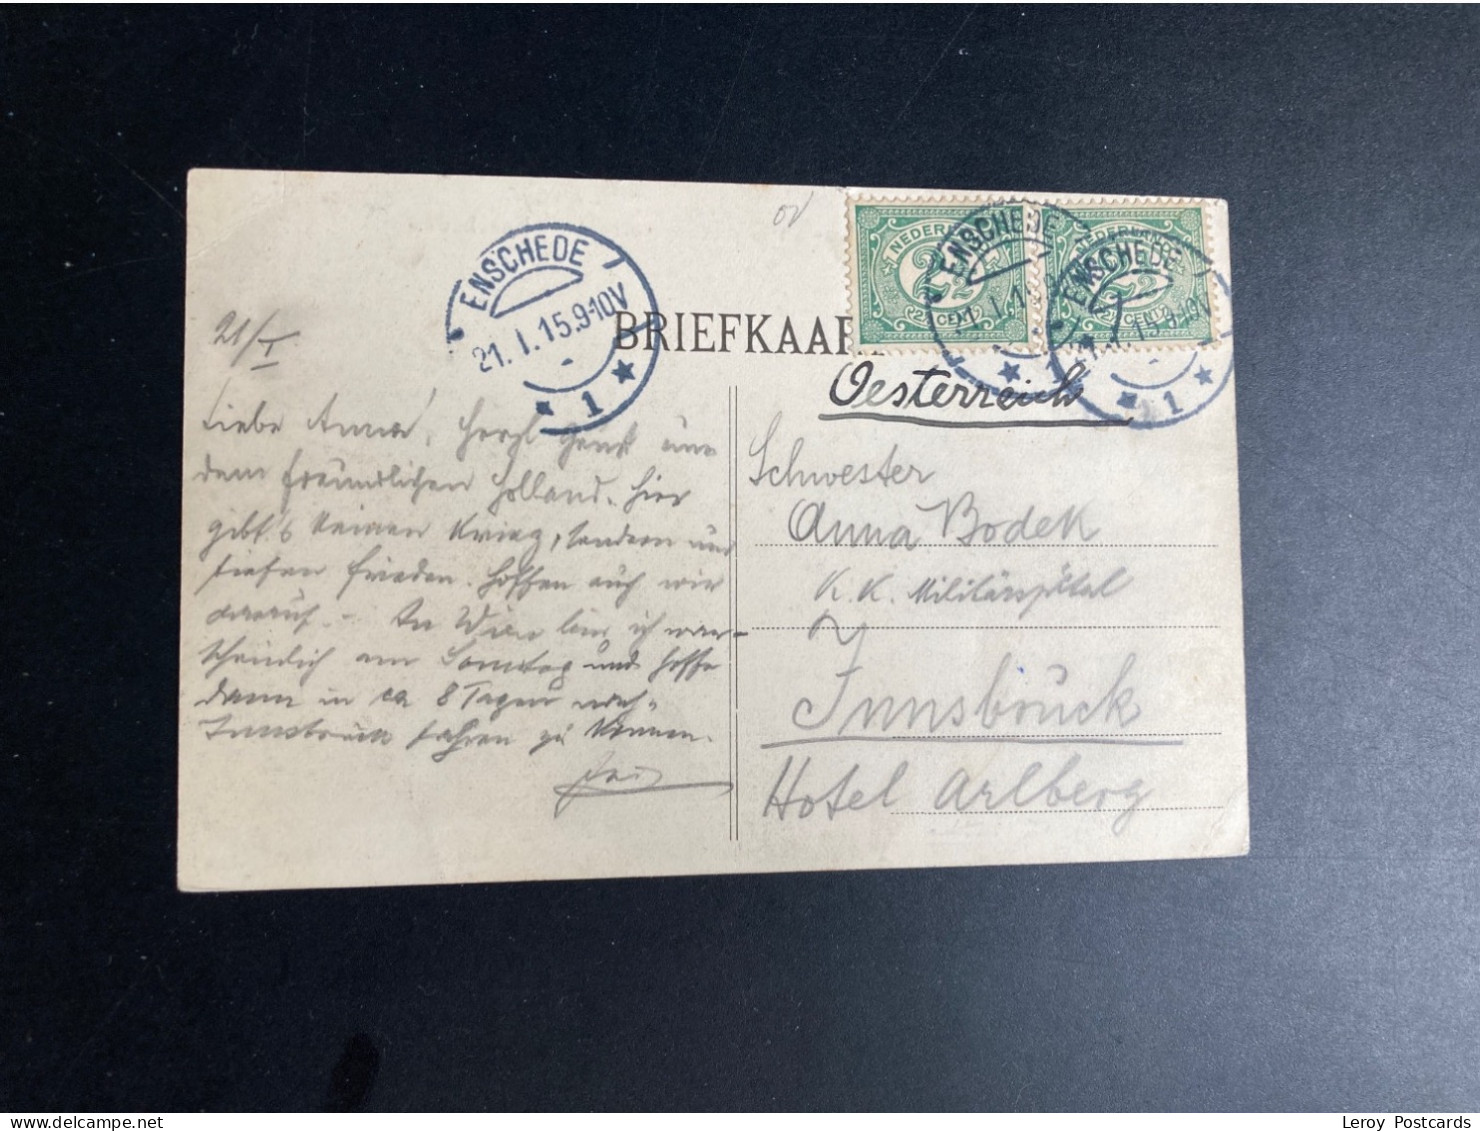 ENSCHEDE
21.I.15.9-10V
1
BRIEFKAAR
NEDERLAND
2½
CENT
ENSCHEDE
21.I.15
NEDERLAND
2½
CENT
ENSCHEDE
21.I.15.9-10V
1
Oesterreich
Schwester
Anna Bodek
K. K. Militärspital
Innsbrück
Hotel Arlberg
21/I
Liebe Anna! Herzl aus
dem freundlichen Holland. Hier
gibt's keinen Krieg, sondern nur
tiefen Frieden. Hoffen auch wir
darauf. – In Wien bin ich war-
scheinlich am Sonntag und hoffe
dann in ca 8 Tagen nach
Innsbruck fahren zu können.
Leroy Postcards